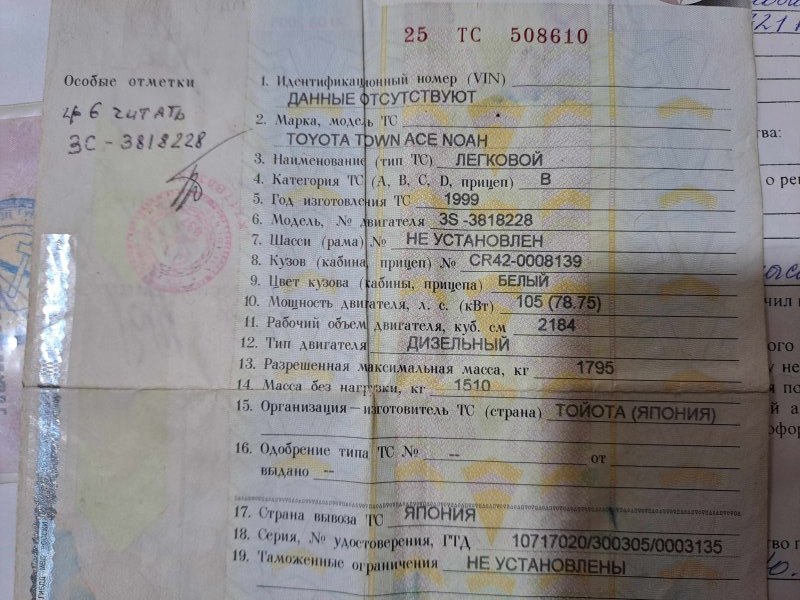 25 ТС 508610
Особые отметки
гр 6 читать
3С-3818228
1. Идентификационный номер (VIN)
ДАННЫЕ ОТСУТСТВУЮТ
2. Марка, модель ТС
TOYOTA TOWN ACE NOAH
3. Наименование (тип ТС) ЛЕГКОВОЙ
4. Категория ТС (А, В, С, D, прицеп) В
5. Год изготовления ТС 1999
6. Модель, № двигателя 3S -3818228
7. Шасси (рама) № НЕ УСТАНОВЛЕН
8. Кузов (кабина, прицеп) № CR42-0008139
9. Цвет кузова (кабины, прицепа) БЕЛЫЙ
10. Мощность двигателя, л. с. (кВт) 105 (78.75)
11. Рабочий объем двигателя, куб. см 2184
12. Тип двигателя ДИЗЕЛЬНЫЙ
13. Разрешенная максимальная масса, кг 1795
14. Масса без нагрузки, кг 1510
15. Организация—изготовитель ТС (страна) ТОЙОТА (ЯПОНИЯ)
16. Одобрение типа ТС № -- от
выдано --
17. Страна вывоза ТС ЯПОНИЯ
18. Серия, № удостоверения, ГТД 10717020/300305/0003135
19. Таможенные ограничения НЕ УСТАНОВЛЕНЫ